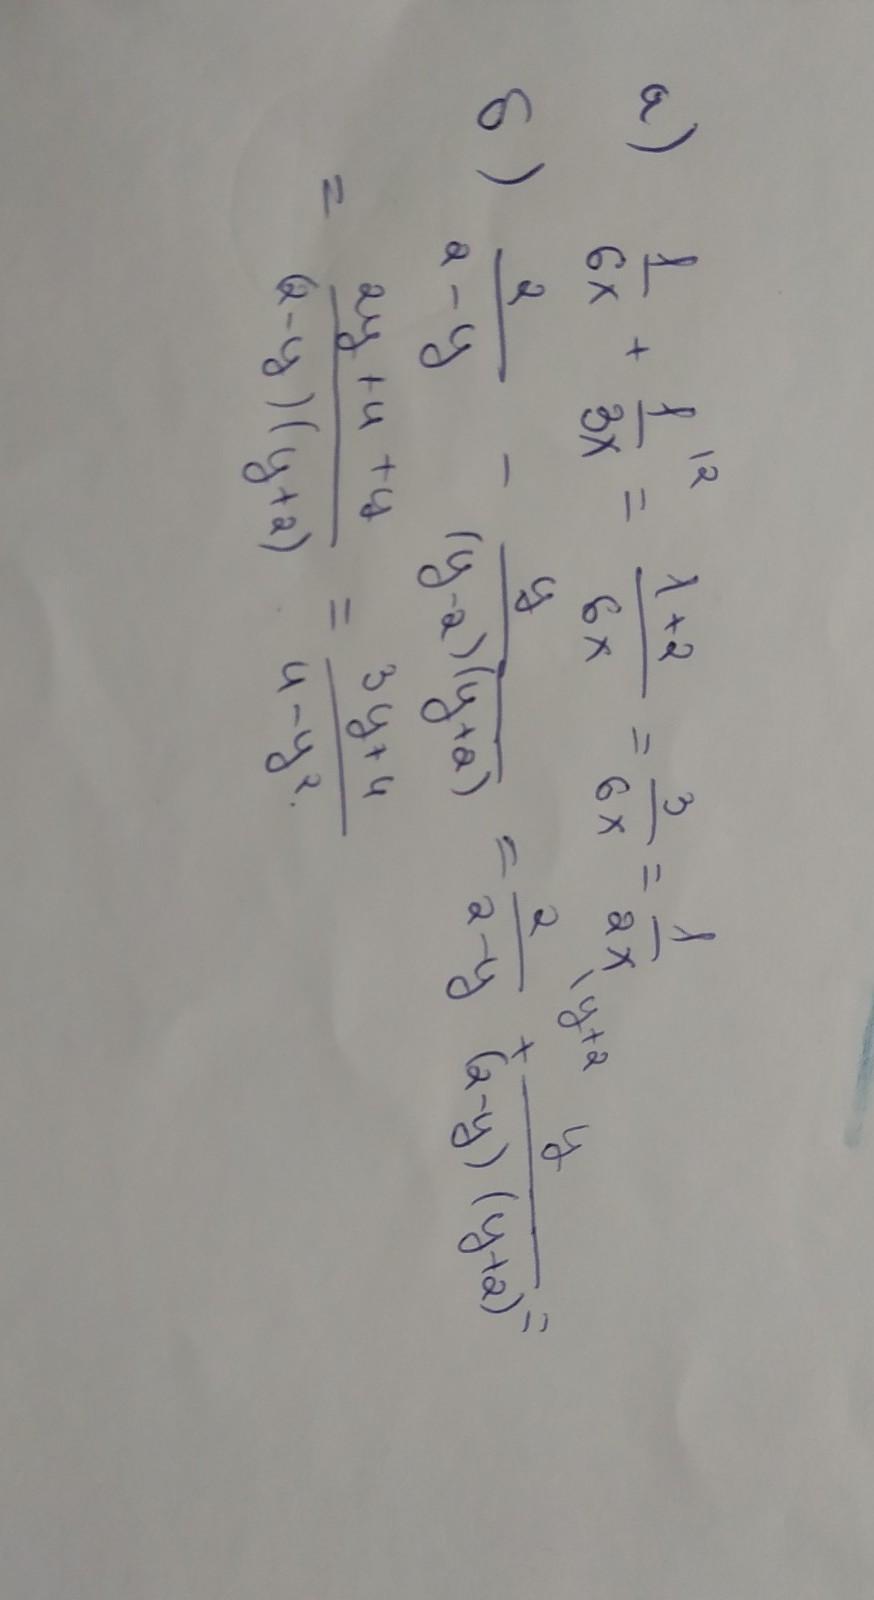 а) 1/6x + 1/3x \2 = 1+2/6x = 3/6x = 1/2x
б) 2/2-y - y/(y-2)(y+2) = 2/2-y \y+2 + y/(2-y)(y+2) =
= 2y+4+y/(2-y)(y+2) = 3y+4/4-y².